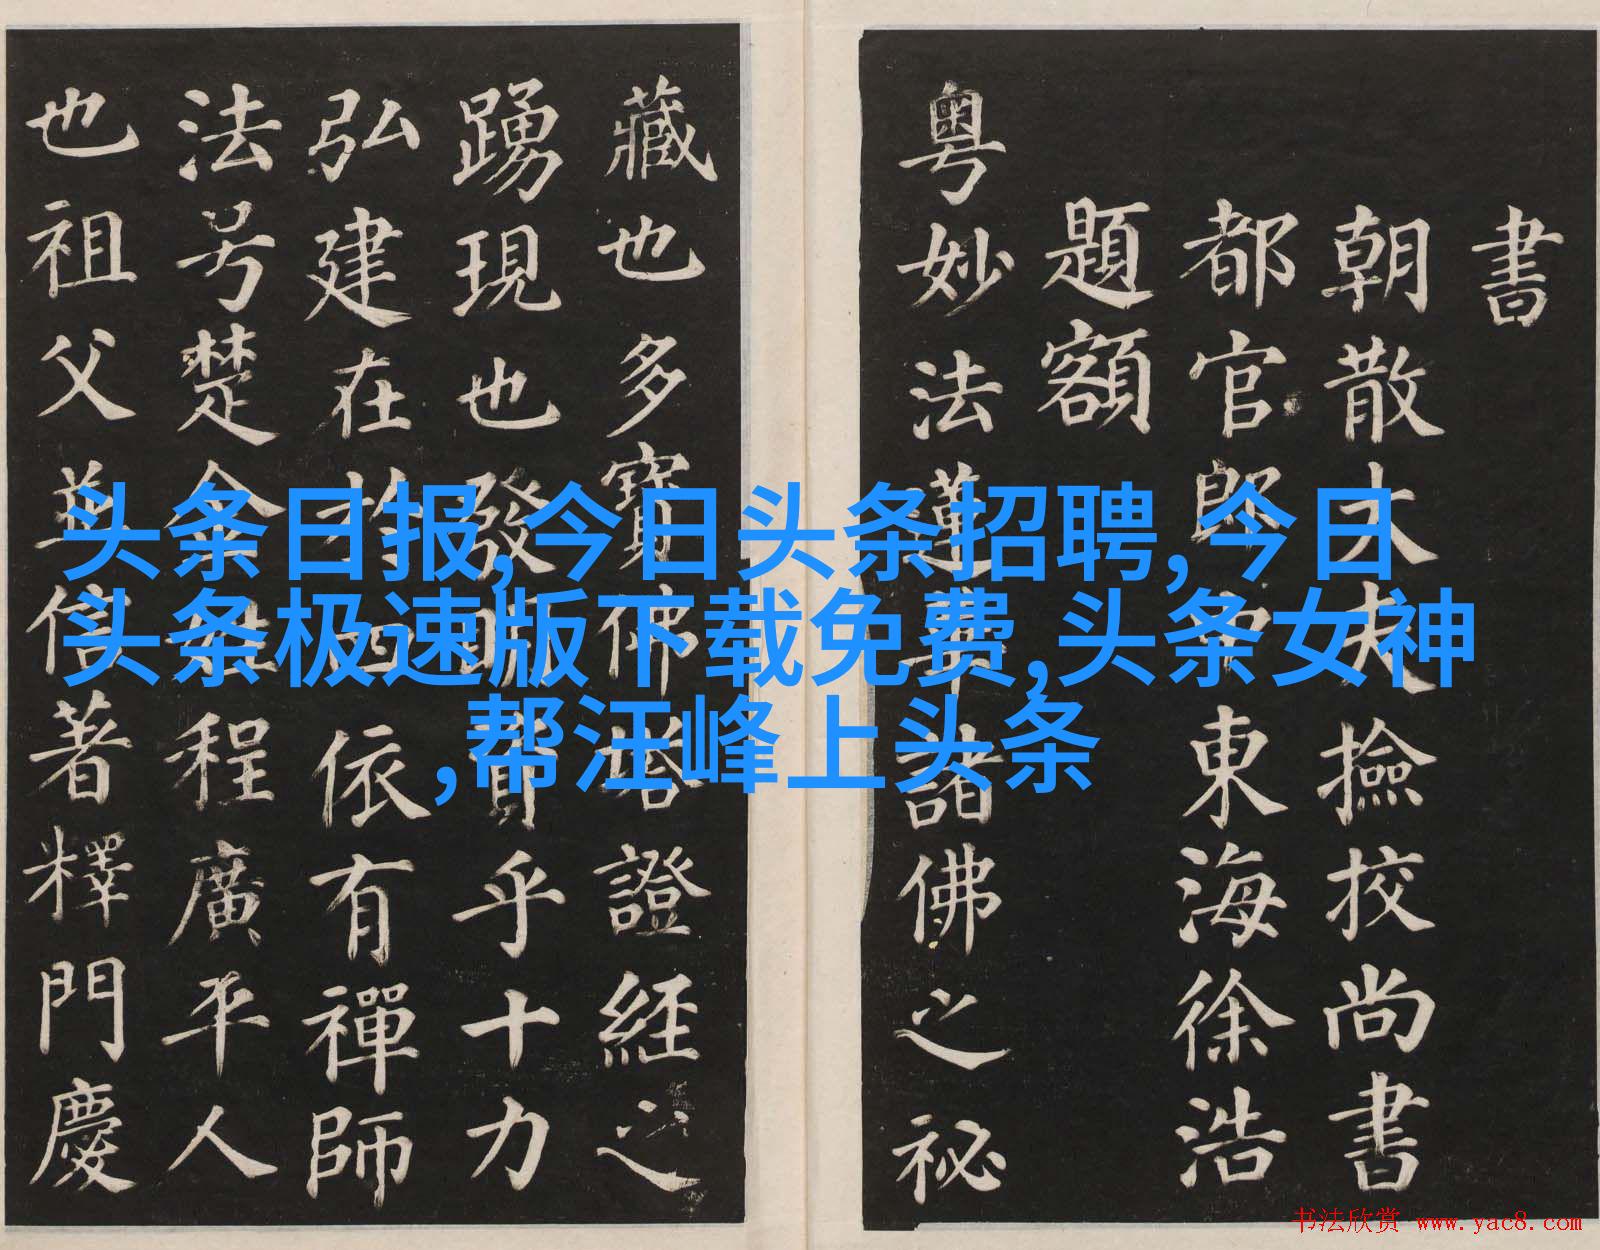 头条日报,今日头条招聘,今日
头条极速版下载免费,头条女神
,帮汪峰上头条
書
朝散大夫撿挍尚書
都官郎中東海徐浩
題額
粤妙法蓮華諸佛之祕
藏也多寶佛塔證經之
踴現也發明資乎十力
弘建在於四依有禪師
法号楚金姓程廣平人
也祖父並信著釋門慶
书法欣赏 www.yac8.com